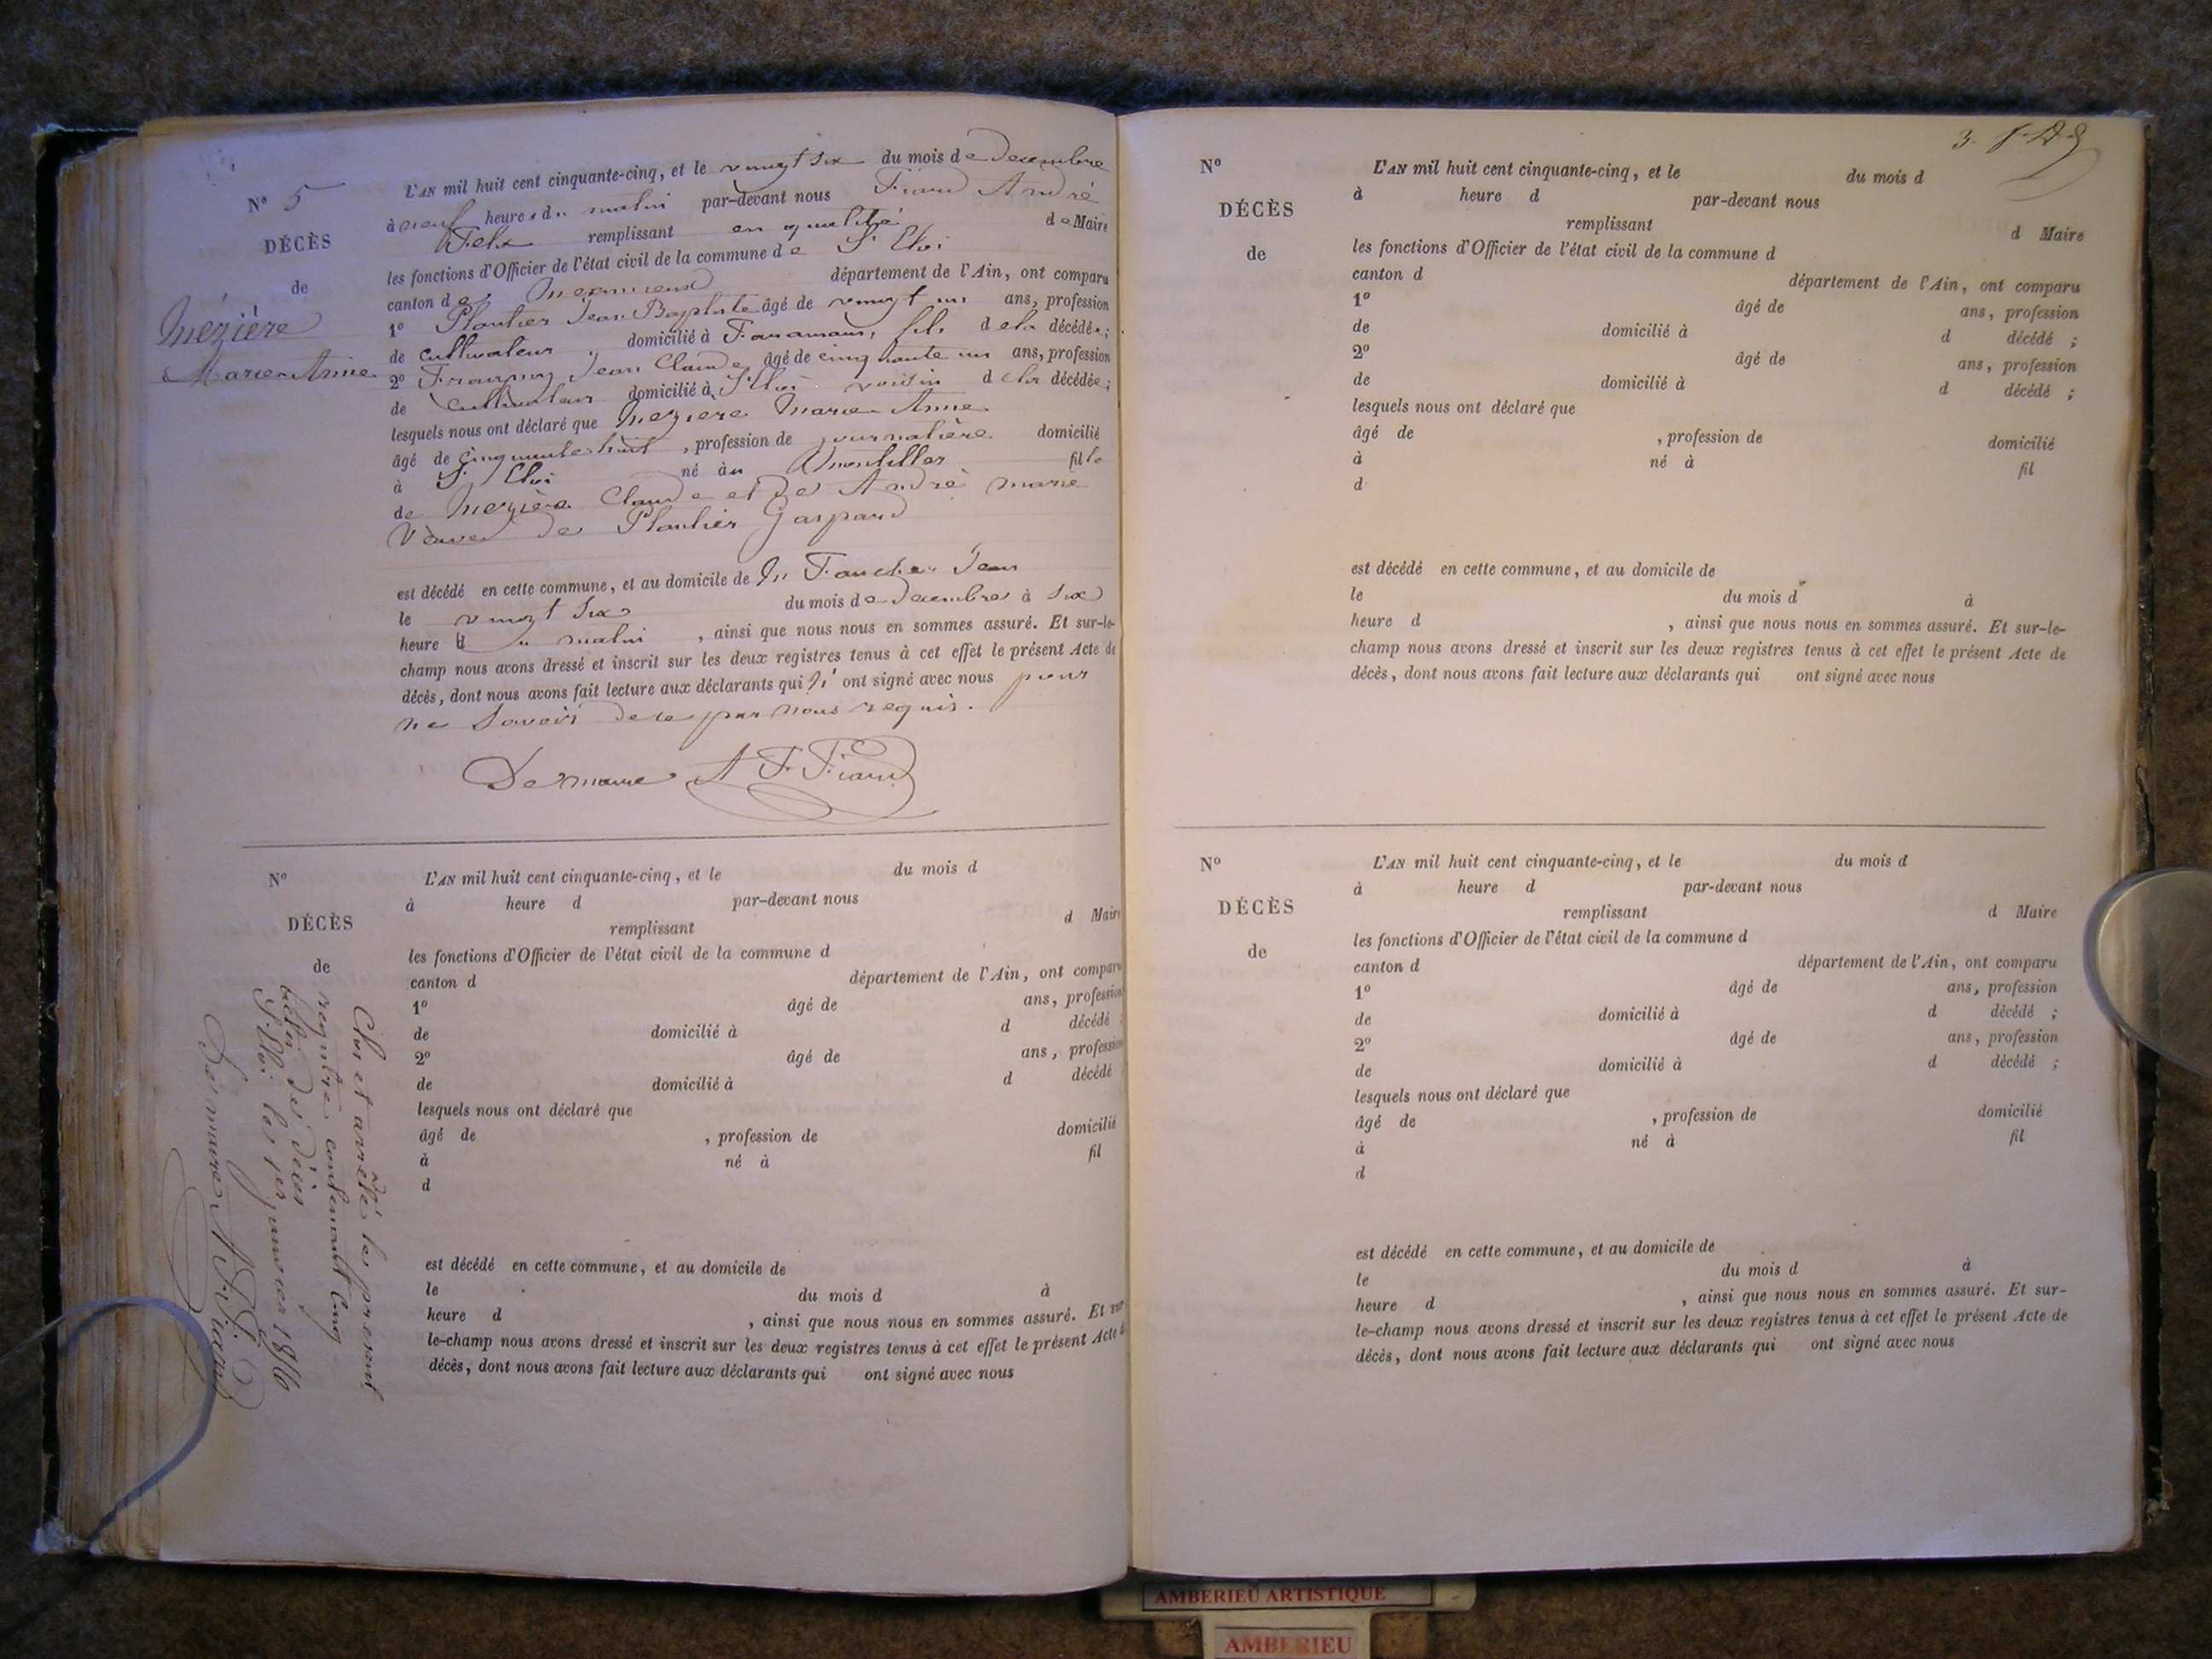 N° 5
DÉCÈS
de
Mézière
Marie Anne
L'AN mil huit cent cinquante-cinq, et le vingt six du mois de Decembre
à neuf heures du matin par-devant nous Fiard André
Felix remplissant en qualité de Maire
les fonctions d'Officier de l'état civil de la commune de St Eloi
canton de Meximieux département de l'Ain, ont comparu
1° Plantier Jean Baptiste âgé de vingt un ans, profession
de cultivateur domicilié à Faramans, fils de la décédée;
2° Jean Claude âgé de cinquante un ans, profession
de cultivateur domicilié à St Eloi voisin de la décédée;
lesquels nous ont déclaré que Mézière Marie Anne
âgé de cinquante huit, profession de journalière domicilié
à St Eloi né au Montellier fille
de Mezière Claude et de André marie
Veuve de Plantier Gaspard
est décédé en cette commune, et au domicile de Jean
le vingt six du mois de Decembre à six
heure du matin, ainsi que nous nous en sommes assuré. Et sur-le-
champ nous avons dressé et inscrit sur les deux registres tenus à cet effet le présent Acte de
décès, dont nous avons fait lecture aux déclarants qui n' ont signé avec nous pour
ne savoir de ce par nous requis.
Le maire A F Fiard
N°
DÉCÈS
de
L'AN mil huit cent cinquante-cinq, et le du mois d
à heure d par-devant nous
remplissant d Maire
les fonctions d'Officier de l'état civil de la commune d
canton d département de l'Ain, ont comparu
1° âgé de ans, profession
de domicilié à d décédé ;
2° âgé de ans, profession
de domicilié à d décédé
lesquels nous ont déclaré que
âgé de , profession de domicilié
à né à fil
d
est décédé en cette commune, et au domicile de
le du mois d à
heure d , ainsi que nous nous en sommes assuré. Et sur
le-champ nous avons dressé et inscrit sur les deux registres tenus à cet effet le présent Acte d
décès, dont nous avons fait lecture aux déclarants qui ont signé avec nous
Clos et arrêté le present
registre contenant cinq
décès
St Eloi le 1er janvier 1856
Le maire A F Fiard
3.
N°
DÉCÈS
de
L'AN mil huit cent cinquante-cinq, et le du mois d
à heure d par-devant nous
remplissant d Maire
les fonctions d'Officier de l'état civil de la commune d
canton d département de l'Ain, ont comparu
1° âgé de ans, profession
de domicilié à d décédé ;
2° âgé de ans, profession
de domicilié à d décédé ;
lesquels nous ont déclaré que
âgé de , profession de domicilié
à né à fil
d
est décédé en cette commune, et au domicile de
le du mois d à
heure d , ainsi que nous nous en sommes assuré. Et sur-le-
champ nous avons dressé et inscrit sur les deux registres tenus à cet effet le présent Acte de
décès, dont nous avons fait lecture aux déclarants qui ont signé avec nous
N°
DÉCÈS
de
L'AN mil huit cent cinquante-cinq, et le du mois d
à heure d par-devant nous
remplissant d Maire
les fonctions d'Officier de l'état civil de la commune d
canton d département de l'Ain, ont comparu
1° âgé de ans, profession
de domicilié à d décédé ;
2° âgé de ans, profession
de domicilié à d décédé ;
lesquels nous ont déclaré que
âgé de , profession de domicilié
à né à fil
d
est décédé en cette commune, et au domicile de
le du mois d à
heure d , ainsi que nous nous en sommes assuré. Et sur-
le-champ nous avons dressé et inscrit sur les deux registres tenus à cet effet le présent Acte de
décès, dont nous avons fait lecture aux déclarants qui ont signé avec nous
AMBERIEU ARTISTIQUE
AMBERIEU